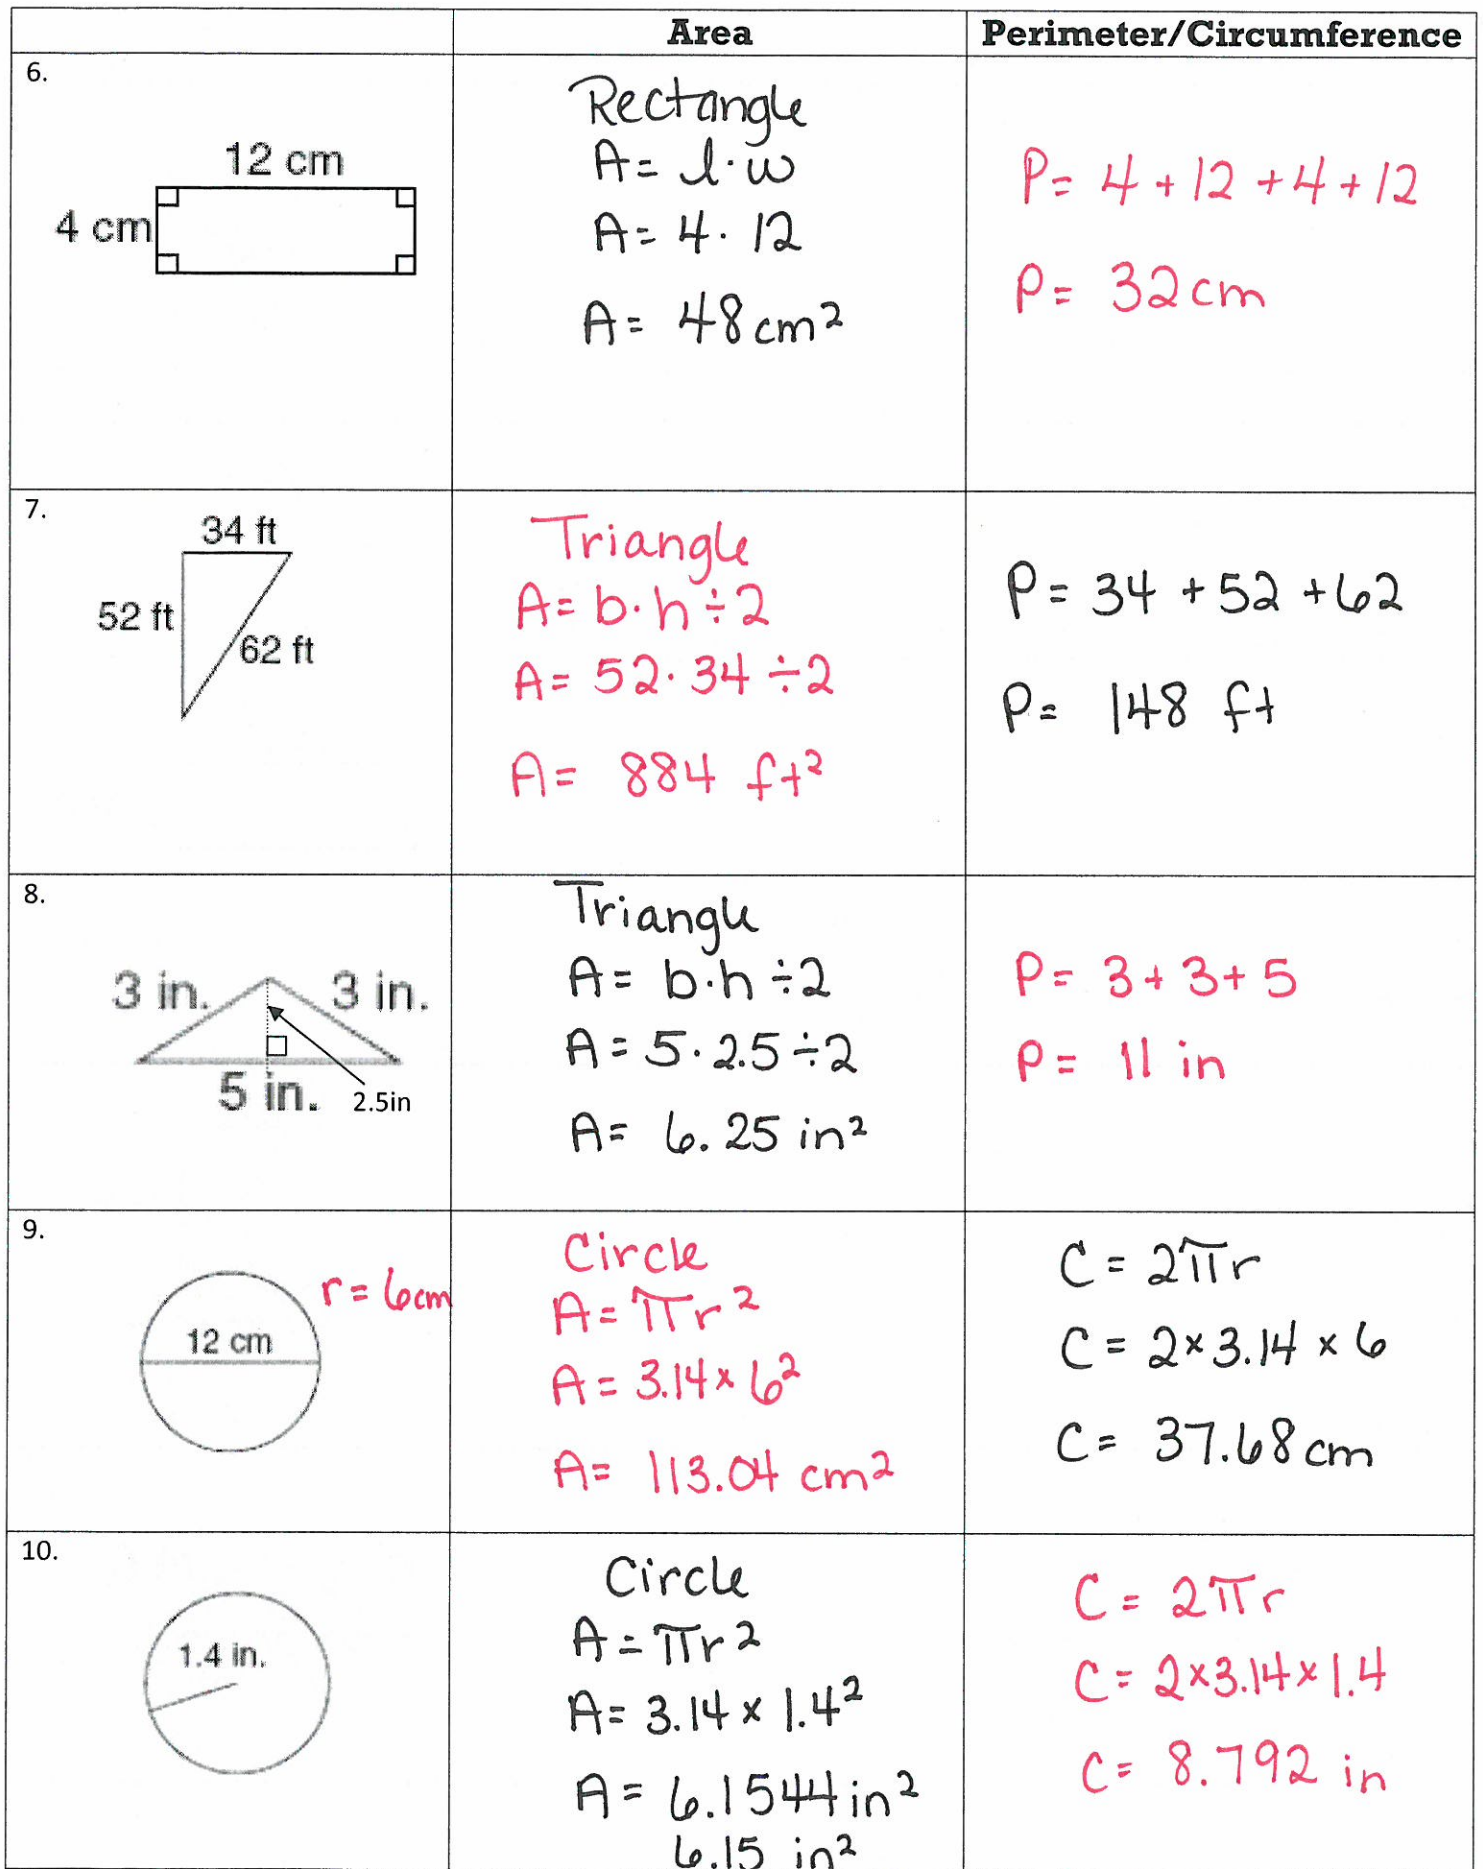 Area Perimeter/Circumference
6.
12 cm
4 cm
Rectangle
A = l·w
A = 4·12
A = 48 cm²
P = 4 + 12 + 4 + 12
P = 32 cm
7.
34 ft
52 ft
62 ft
Triangle
A = b·h ÷ 2
A = 52·34 ÷ 2
A = 884 ft²
P = 34 + 52 + 62
P = 148 ft
8.
3 in. 3 in.
5 in. 2.5in
Triangle
A = b·h ÷ 2
A = 5·2.5 ÷ 2
A = 6.25 in²
P = 3 + 3 + 5
P = 11 in
9.
r = 6cm
12 cm
Circle
A = πr²
A = 3.14 × 6²
A = 113.04 cm²
C = 2πr
C = 2 × 3.14 × 6
C = 37.68 cm
10.
1.4 in.
Circle
A = πr²
A = 3.14 × 1.4²
A = 6.1544 in²
6.15 in²
C = 2πr
C = 2 × 3.14 × 1.4
C = 8.792 in